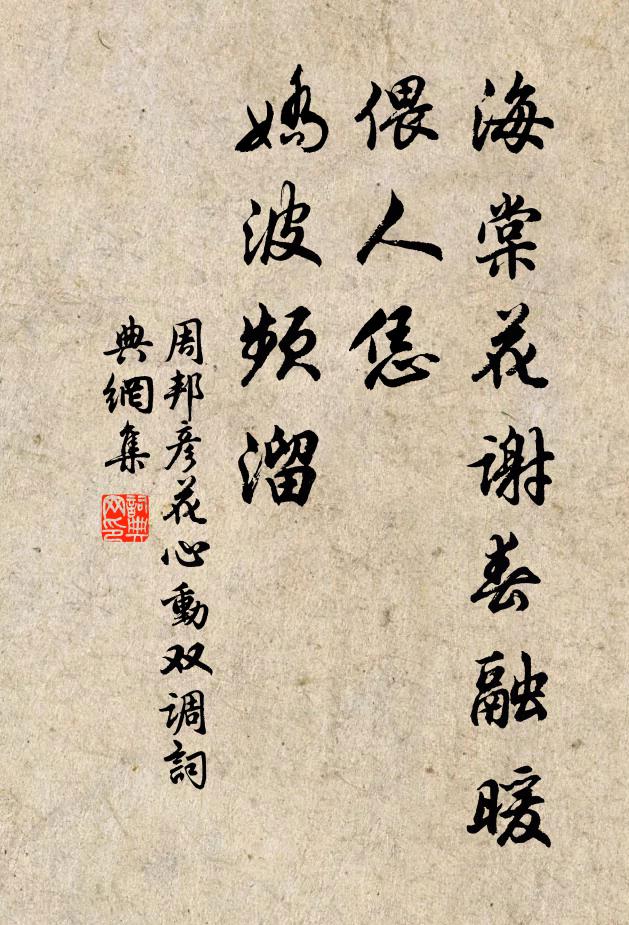 海棠花谢春融暖
偎人恁
娇波频溜
周邦彦花心動双调詞
典網集
詞典網印